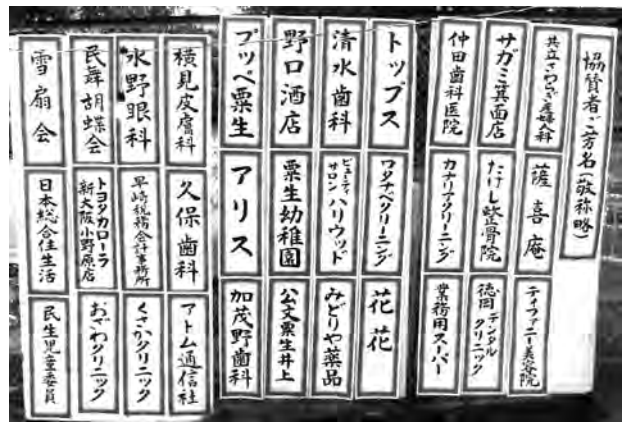 協賛者ご芳名(敬称略)
共立さわらぎ産婦人科
薩喜庵
ティファニー美容院
サガミ箕面店
たけし整骨院
徳岡デンタルクリニック
仲田歯科医院
カナリヤクリーニング
業務用スーパー
トップス
ワタナベクリーニング
花花
清水歯科
ビューティサロンハリウッド
みどりや薬品
野口酒店
粟生幼稚園
公文粟生井上
プッペ粟生
アリス
加茂野歯科
横見皮膚科
久保歯科
アトム通信社
水野眼科
早崎税務会計事務所
くさかクリニック
民舞胡蝶会
トヨタカローラ新大阪小野原店
おざわクリニック
雪扇会
日本総合住生活
民生児童委員